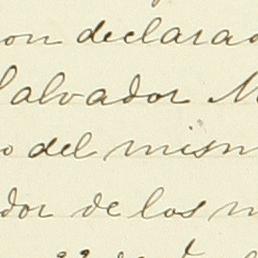 on declarad
Salvador M
o del mism
dor de los m